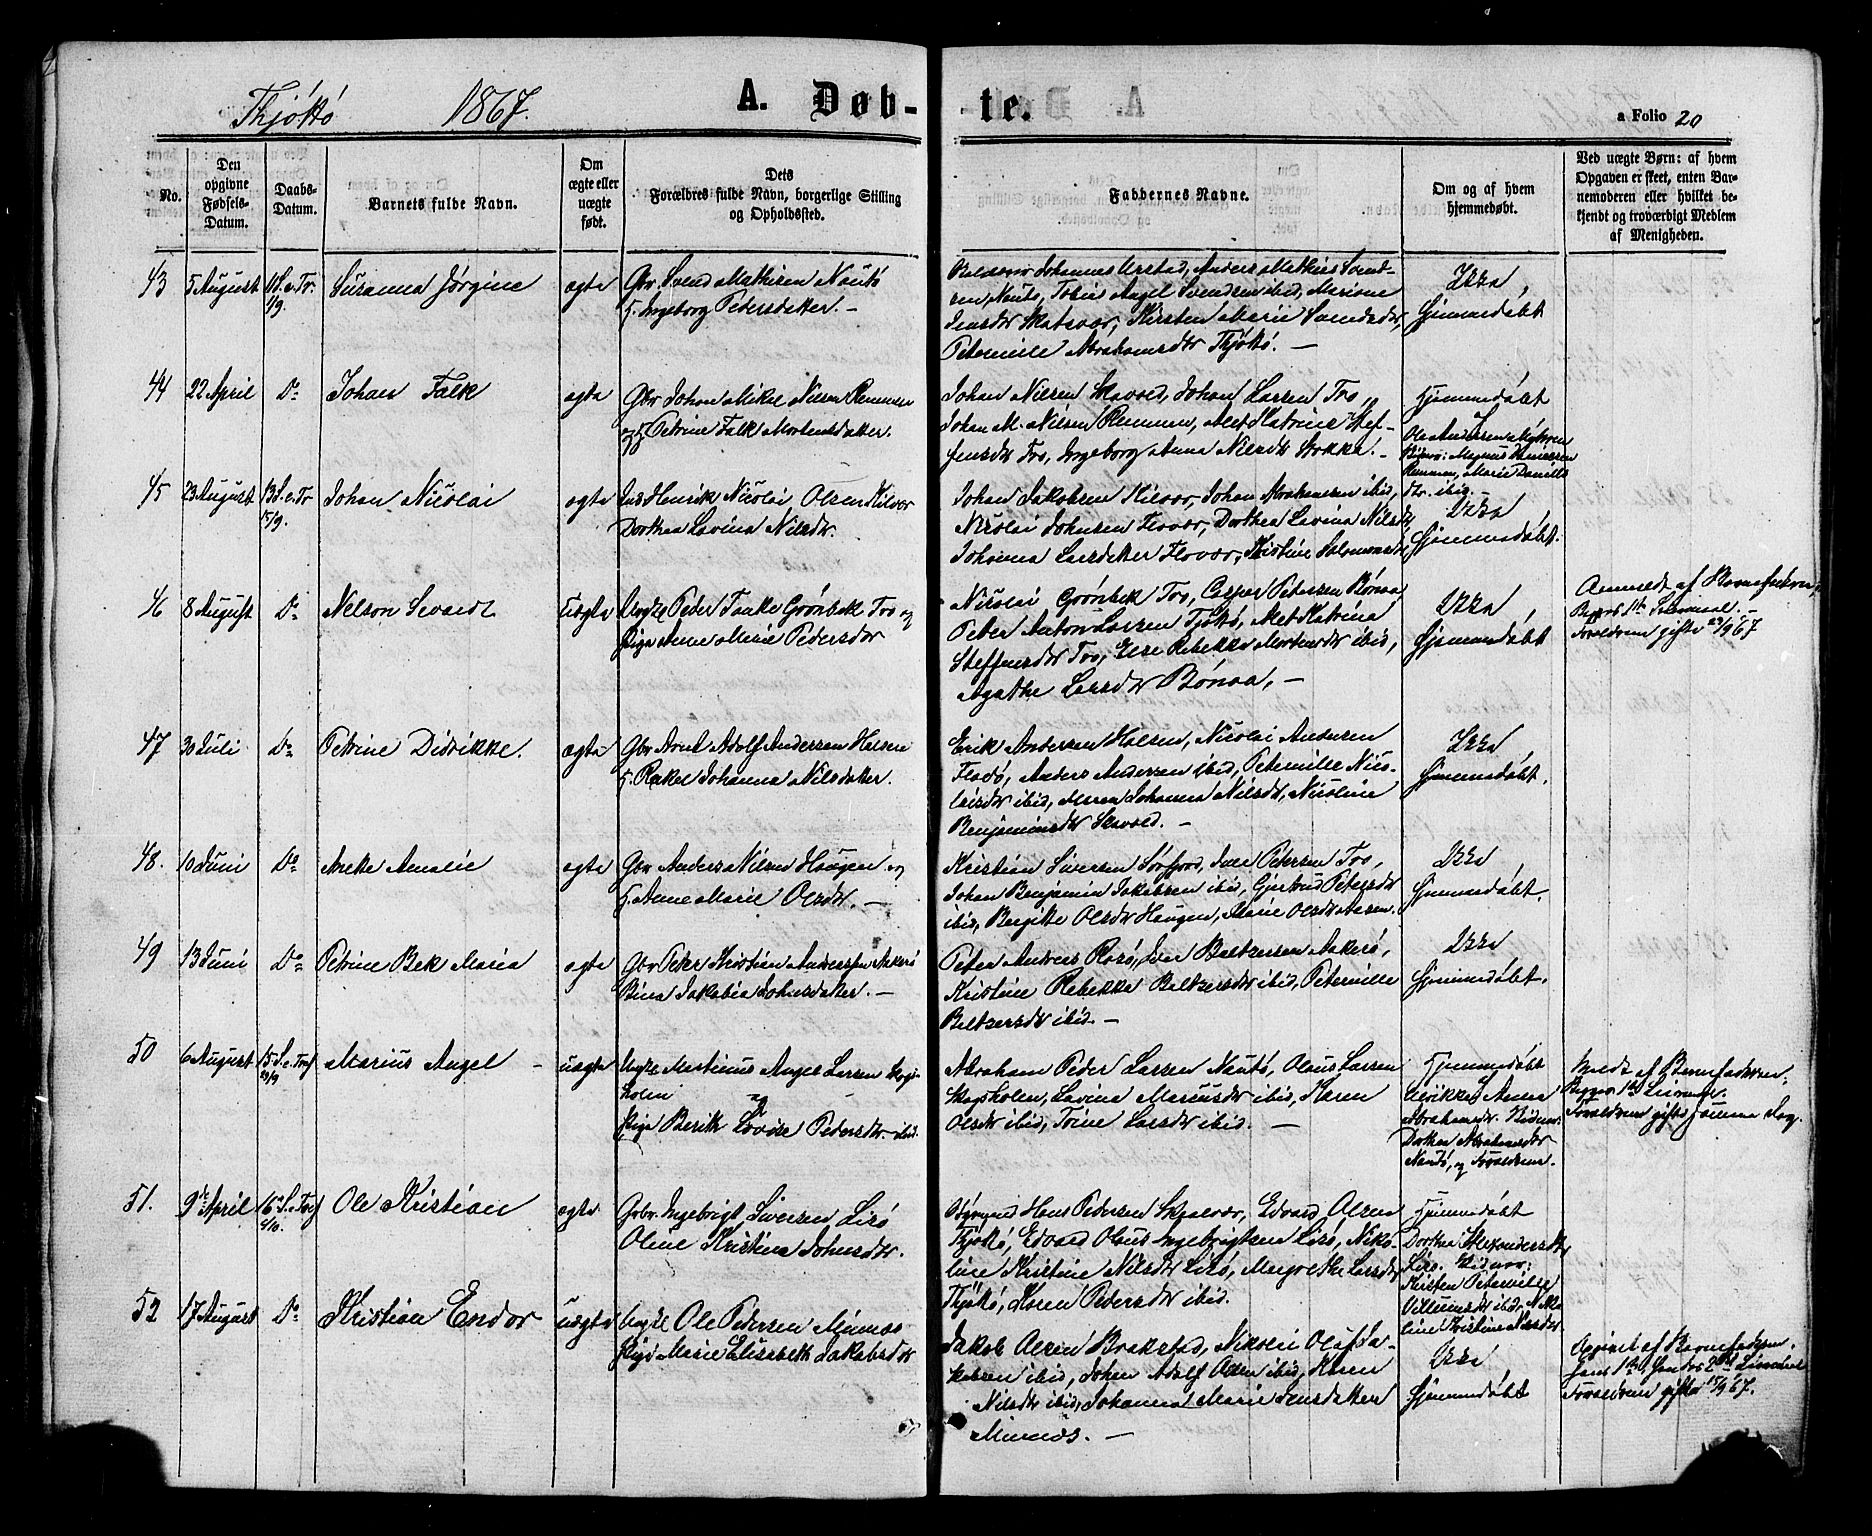 Thjóttó 1867. A. Døb-te. a Folio 20
No.
Den opgivne Fødsels-Datum.
Daabs-Datum.
Barnets fulde Navn.
Om ægte eller uægte født.
Dets Forældres fulde Navn, borgerlige Stilling og Opholdssted.
Faddernes Navne.
Om og af hvem hjemmedøbt.
Ved uægte Børn: af hvem Opgaven er skeet, enten Barnemoderen eller hvilket bekjendt og troværdigt Medlem af Menigheden.
43 5 August 11 S. e. Tr. 1/9. Susanna Jørgine ægte Gbr. Svend Mathisen Nautø
Ingeborg Pedersdatter. –
Johannes Urstad, Anders Mathias Svend-
sen Nautø, Tobias Angel Svendsen ibid, Mariane
Jensdtr Skatvær, Kirsten Marie Svendsdtr,
Petermille Abrahamsdtr Thjøttø. –
Ikke Hjemmedøbt
44 22 April Do Johan Falk ægte Gbr Johan Mikal Nilsen Remmen
og Petrine Falk Mortensdatter.
Johan Nilsen Skavold, Johan Larsen Tro,
Johan M. Nilsen Remmen, Met Katrine Stef-
fensdtr Tro, Ingeborg Anna Nilsdtr Stokka. –
Hjemmedøbt
Ole Andersen
Remmen, Marie Daniels
dtr. ibid. –
45 23 August 13 S. e. Tr 15/9. Johan Nicolai ægte Henrik Nicolai Olsen Kilvær
Dorthea Lavina Nilsdtr.
Johan Jakobsen Kilvær, Johan Abrahamsen ibid,
Nicolai Johnsen Flovær, Dorthea Lavina Nilsdtr,
Johanna Larsdatter Flovær, Kristine Salomonsdtr
Ikke Hjemmedøbt.
46 8 August Do Nelson Sevardt uægte Ungkl Peder Taake Grønbek Tro og
Pige Anne Marie Pedersdtr
Nicolai Grønbek Tro, Casper Petersen Bønaa,
Peter Anton Larsen Tjøttø, Met Katrina
Steffensdtr Tro, Else Rebekka Mortensdtr ibid,
Agathe Larsdtr Bønaa, –
Ikke Hjemmedøbt
Anmeldt af Barnefaderen,
Begges 1ste Leiermaal. –
Forældrene gifte 23/9 67
47 30 Juli Do Petrine Didrikke. ægte Gbr Arnt Adolf Andersen Halsen
Rakel Johanna Nilsdatter.
Erik Andersen Halsen, Nicolai Andersen
Flodø, Anders Andersen ibid, Petermille Nico-
laisdtr ibid, Maren Johanna Nilsdtr, Nicoline
Benjaminsdtr Skavold. –
Ikke Hjemmedøbt.
48. 10 Juni Do Amalie ægte Gbr Anders Nilsen Haugen og
Anne Marie Olsdtr. –
Kristian Siversen Sørfjord, Petersen Tro,
Johan Benjamin Jakobsen ibid, Gjertrud Petersdtr
ibid, Bergitte Olsdtr Haugen, Marie Olsdtr
Ikke Hjemmedøbt.
49 13 Juni Do Petrine Bek Maria ægte Gbr Peder Kristian Andersen Aakerø
Jakobia Johnsdatter. –
Peter Andreas Rosø, Baltzersen Aakerø,
Kristine Rebekka Baltzersdtr ibid, Petermille
Baltzersdtr ibid. –
Ikke Hjemmedøbt.
50 6 August 15 S. e. Tref 29/9 Marius Angel – uægte Ungkl Martinus Angel Larsen Skogs-
holm og
Pige Berith Lovise Pedersdtr ibid.
Abraham Peder Larsen Nautø, Olaus Larsen
Skogsholm, Lavina Mariusdtr ibid, Karen
Olsdtr ibid, Trine Larsdtr ibid. –
Hjemmedøbt
Ulrikke Anna
Abrahamsdtr.
Dorthea Abrahamsdtr
Nautø, og Forældrene.
Meldt af Barnefaderen.
Begges 1ste Leiermaal.
Forældrene gifte samme Dag.
51. 9de April 16 S. e. Tref 6/10. Ole Kristian ægte Gbr. Ingebrigt Siversen Lisø
Oline Kristina Johnsdtr.
Hans Pedersen Skjelvær, Edvard Olsen
Thjøttø, Edvard Olaus Ingebrigtsen Lisø, Niko-
line Kristine Nilsdtr Lisø, Margrethe Larsdtr
Thjøttø, Karen Pedersdtr ibid.
Hjemmedøbt
Dorthea Alexandersdtr
Lisø.
Kirsten Petermille
Villumsdtr ibid, Niko
line Kristine Nilsdtr
52 17 August Do Kristian Endor uægte Ungkl Ole Pedersen Mumæs
Pige Marie Elisabeth Jakobsdtr
Jakob Olsen Brækstad, Nikolai Olaf Ja-
kobsen ibid, Johan Adolf Olsen ibid, Karen
Nilsdtr ibid, Johanna Marie Jensdatter
Mumæs. –
Ikke Hjemmedøbt
Opgivet af Barnefaderen.
Hans 1ste, hendes 2det Leiermaal
Forældrene gifte 15/9 67.